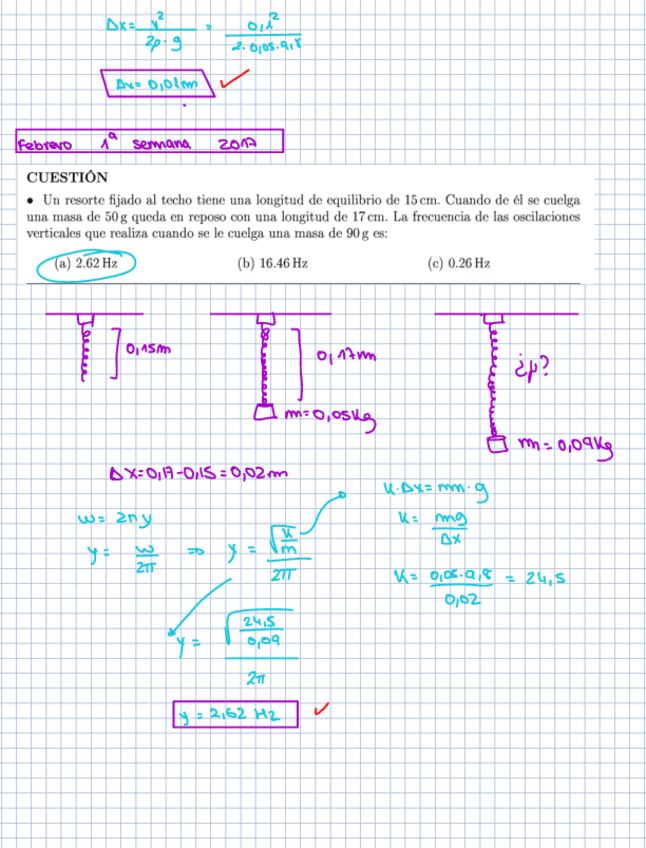 Δx = v² / 2μ·g = 0,1² / 2·0,05·9,8
Δx = 0,01m
Febrero 1ª semana 2017
CUESTIÓN
• Un resorte fijado al techo tiene una longitud de equilibrio de 15 cm. Cuando de él se cuelga
una masa de 50 g queda en reposo con una longitud de 17 cm. La frecuencia de las oscilaciones
verticales que realiza cuando se le cuelga una masa de 90 g es:
(a) 2.62 Hz (b) 16.46 Hz (c) 0.26 Hz
0,15m
0,17m
¿ν?
m=0,05Kg
m=0,09Kg
Δx=0,17-0,15=0,02m
K·Δx=m·g
ω= 2πν
K= mg / Δx
ν= ω / 2π ⇒ ν = √(K/m) / 2π
K= 0,05·9,8 / 0,02 = 24,5
ν= √(24,5/0,09) / 2π
ν = 2,62 Hz